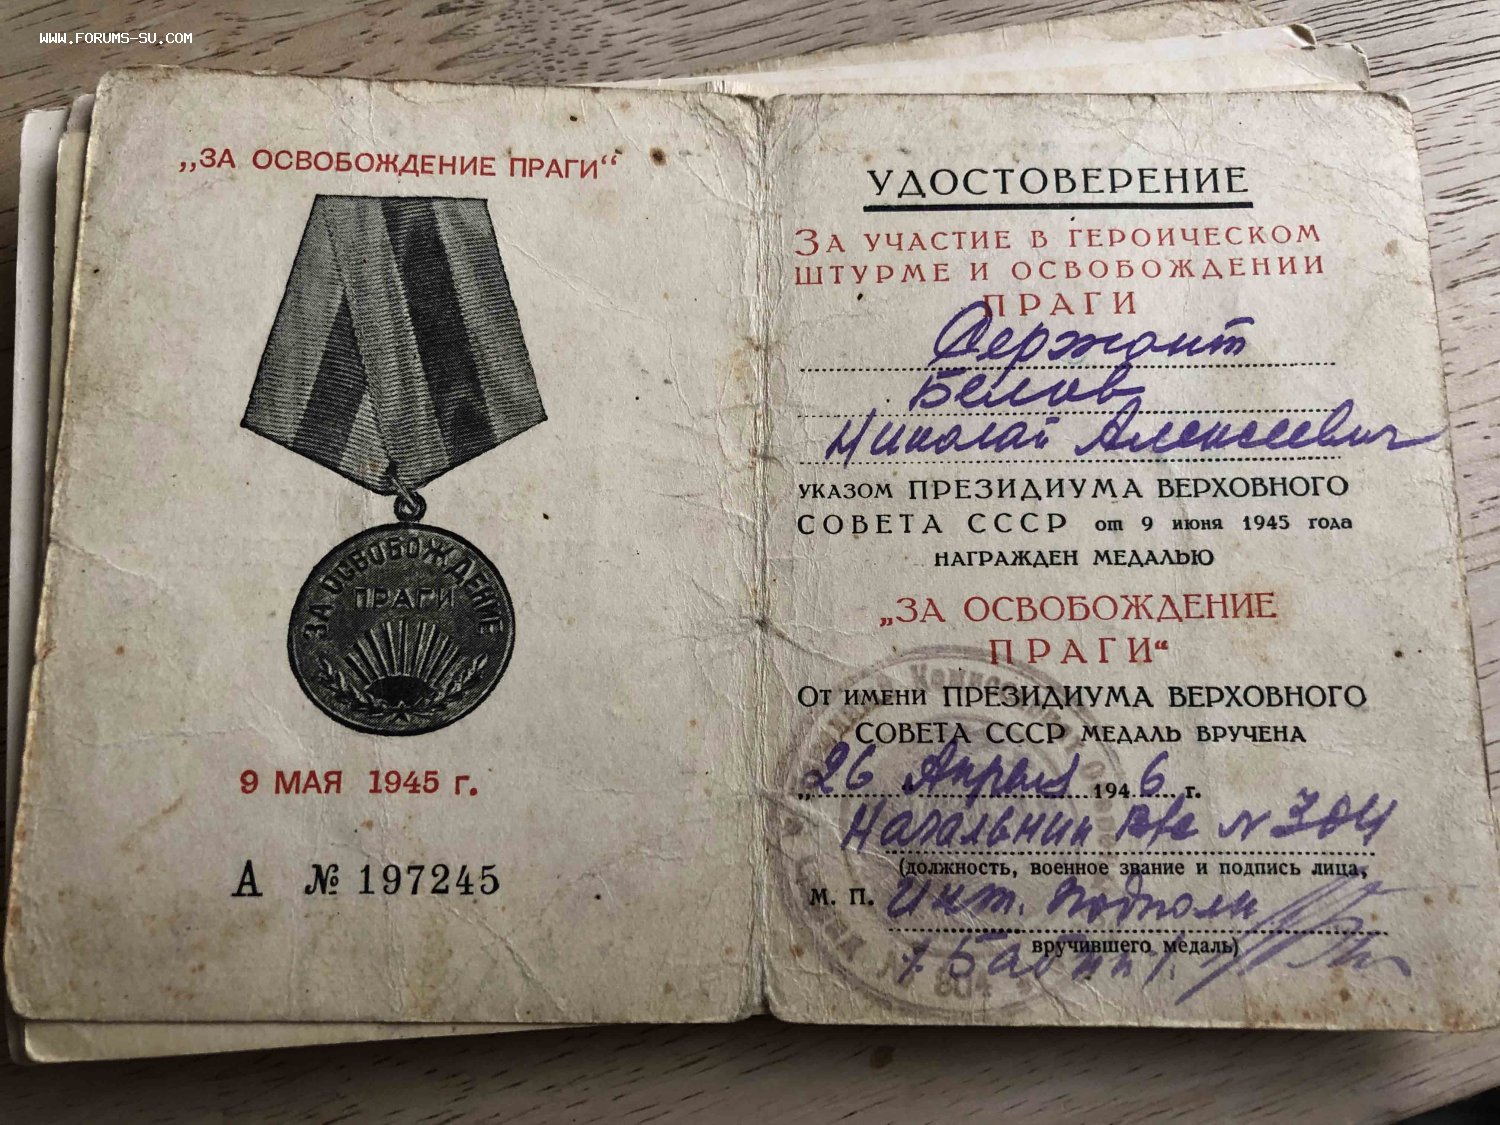 WWW.FORUMS-SU.COM
„ЗА ОСВОБОЖДЕНИЕ ПРАГИ“
ЗА ОСВОБОЖДЕНИЕ
ПРАГИ
9 МАЯ 1945 г.
А № 197245
УДОСТОВЕРЕНИЕ
ЗА УЧАСТИЕ В ГЕРОИЧЕСКОМ
ШТУРМЕ И ОСВОБОЖДЕНИИ
ПРАГИ
Сержант
Белов
Николай Алексеевич
УКАЗОМ ПРЕЗИДИУМА ВЕРХОВНОГО
СОВЕТА СССР от 9 июня 1945 года
НАГРАЖДЕН МЕДАЛЬЮ
„ЗА ОСВОБОЖДЕНИЕ
ПРАГИ“
ОТ ИМЕНИ ПРЕЗИДИУМА ВЕРХОВНОГО
СОВЕТА СССР МЕДАЛЬ ВРУЧЕНА
„26 Апреля 1946 г.
Начальник N 304
(должность, военное звание и подпись лица,
М. П. Инт. Подполк
вручившего медаль)
/Бабкин/